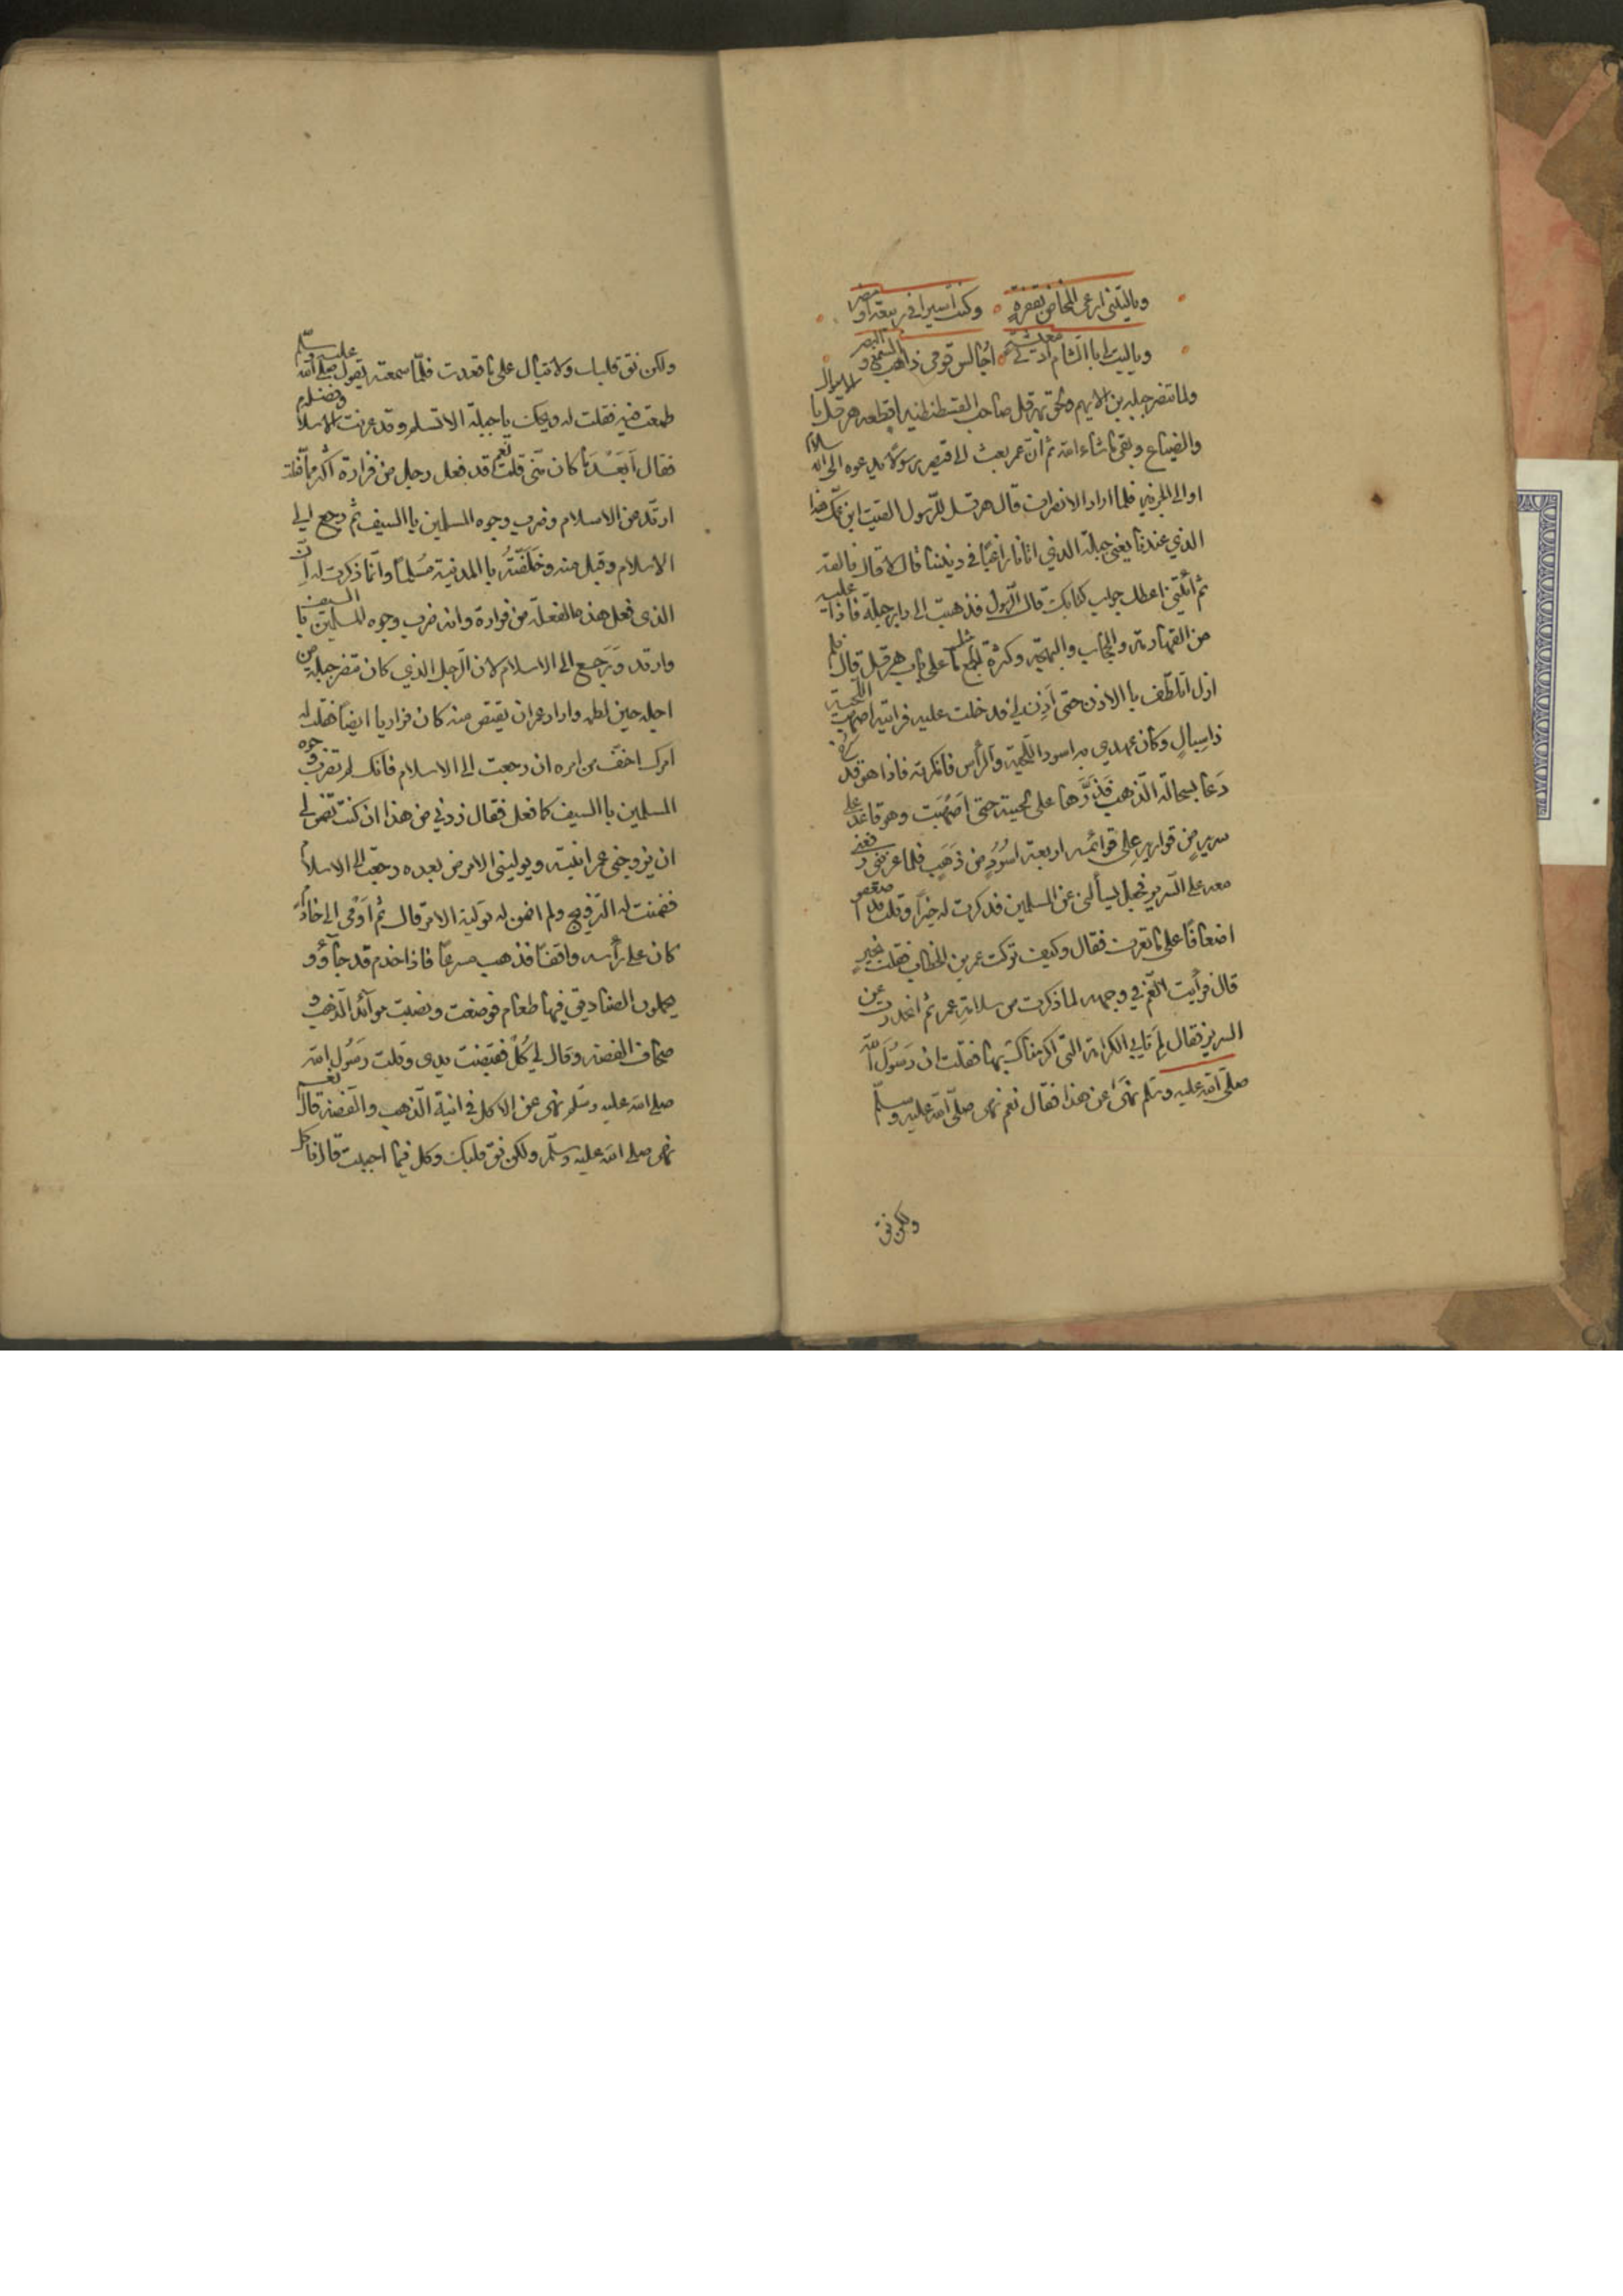 وياليتني ارعى المخاض بقفرةٍ وكنت اسيرا في ربيعة او مضر
وياليت لي بالشام ادنى معيشة اجالس قومي ذاهب السمع والبصر
ولما تنصر جبلة بن الايهم ولحق بهرقل صاحب القسطنطنية اقطعه هرقل الاموال
والضياع وبقى ما شاء الله ثم ان عمر بعث الى قيصر رسولا يدعوه الى الاسلام
او الى الجزية فلما اراد الانصراف قال هرقل للرسول القيت ابن عمك هذا
الذي عندنا يعني جبلة الذي اتانا راغبًا في ديننا قال لا قال فالقه
ثم ائتني اعطك جواب كتابك قال الرسول فذهبت الى دار جبلة فاذا عليه
من القهارمة والحجاب والبهجة وكثرة الجمع مثل ما على باب هرقل قال فلم
ازل اتلطف با الاذن حتى اَذِن لي فدخلت عليه فرايته اصهب اللحية
ذا سِبالٍ وكان عهدي به اسود اللحية والرأس فانكرته فاذا هو قد
دَعا بسحالة الذهب فذرَّها على لحيته حتى اَصْهَبَت وهو قاعد على
سريرٍ من قوارير على قوائمه اربعة اسُوُدٍ من ذَهَبٍ فلما عرفني رفعني
معه على السرير فجعل يسألني عن المسلمين فذكرت له خيرًا وقلت قد
اضعافًا على ما تعرف فقال وكيف تركت عمر بن الخطاب فقلت بخيرٍ
قال فرأيت الغم في وجهه لما ذكرت من سلامة عمر ثم انحدرت عن
السرير فقال لِمَ تابى الكرامة التي اكرمناك بها فقلت ان رَسُوَلَ الله
صلّى الله عليه وسلم نهَىٰ عن هذا فقال نعم نهى صلّى الله عليه وسلّم
ولكن نق
ولكن نق قلبك ولا تبال على ما قعدت فلمّا سمعته يقول صلى الله عليه وسلّم
طمعت فيه فقلت له ويحك يا جبلة الا تسلم وقد عرفت الاسلام وفضله
فقال اَبَعْدَ ما كان منّي قلت نعم قد فعل رجل من فزارة اكثر ممّا فعلت
ارتد من الاسلام وضرب وجوه المسلمين با السيف ثم رجع الى
الاسلام وقبل منه وخَلَّفتُه با المدنية مُسلمًا وانّما ذكرت له انّ
الذى فعل هذه الفعلة من فزارة وانه ضرب وجوه المسلمين با السيف
وارتد وَرَجع الى الاسلام لان الرّجل الذي كان تنصر جبلة من
اجله حين لطمه واراد عمر ان يقتص منه كان فزاريا ايضًا فقلت له
امرك اخف من امره ان رجعت الى الاسلام فانك لم تضرب وجوه
المسلمين با السيف كما فعل فقال زدني من هذا ان كنت تضمن لي
ان يزوجني عمر ابنته ويوليني الامر من بعده رجعت الى الاسلام
فضمنت له التزويج ولم اضمن له تولية الامر قال ثم اَوْمى الى خادم
كان على رأسه واقفًا فذهب مسرعًا فاذا خدم قد جآؤو
يحملون الصناديق فيها طعام فوضعت ونصبت موآئد الذهب و
صحاف الفضة وقال لي كُلْ فقبضت يدى وقلت رَسُول الله
صلى الله عليه وسلّم نهى عن الاكل في انية الذهب والفضة قال نعم
نهى صلى الله عليه وسلّم ولكن نق قلبك وكل فيما احببت قال فاكل